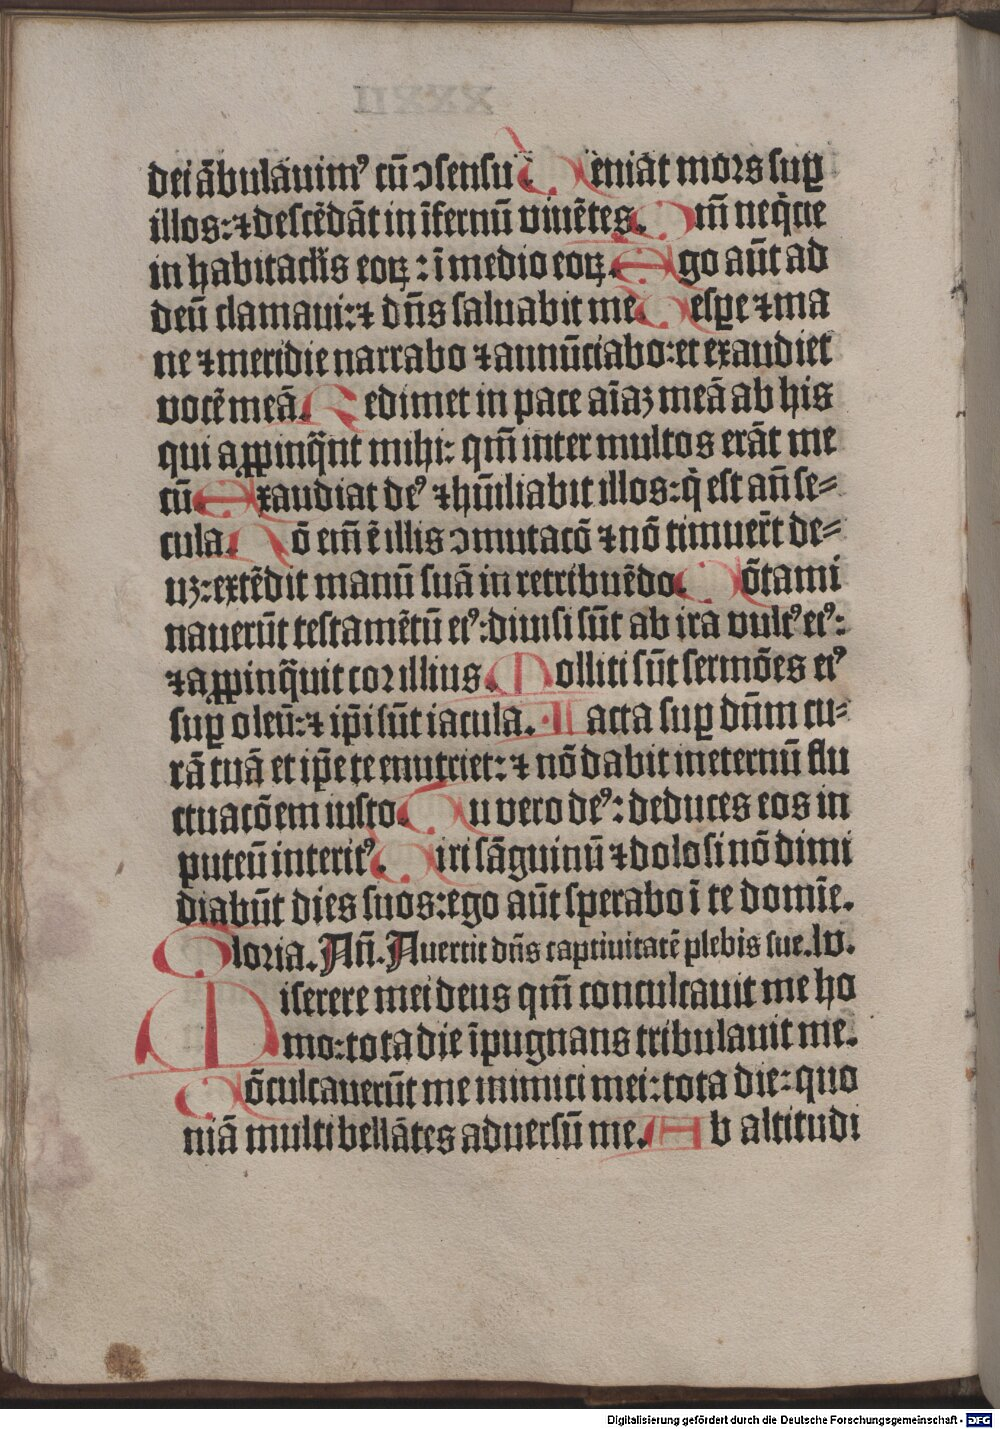 dei ābulauimꝰ cū ↄsensu. Ueniat mors suꝑ
illos: ⁊ descēdāt in īfernū viuētes. Qm̄ neq̄tie
in habitacl̄is eoꝝ: ī medio eoꝝ. Ego aūt ad
deū clamaui: ⁊ dn̄s saluabit me. Uesꝑe ⁊ ma
ne ⁊ meridie narrabo ⁊ annūciabo: et exaudiet
vocē meā. Redimet in pace aīaꝫ meā ab his
qui aꝓpinq̄nt mihi: qm̄ inter multos erāt me
cū. Exaudiat deꝰ ⁊ hūiliabit illos: q̇ est an̄ se⸗
cula. Nō em̄ ē illis ↄmutacō ⁊ nō timuer̄t de⸗
uꝫ: extēdit manū suā in retribuēdo. Cōtami
nauerūt testamētū eiꝰ: diuisi sūt ab ira vultꝰ eiꝰ:
⁊ aꝓpinq̄uit cor illius. Molliti sūt sermōes eiꝰ
suꝑ oleū: ⁊ ip̄i sūt iacula. Iacta suꝑ dn̄m cu⸗
rā tuā et ip̄e te enutriet: ⁊ nō dabit ineternū flu
ctuacōem iusto. Tu vero deꝰ: deduces eos in
puteū interitꝰ. Uiri sāguinū ⁊ dolosi nō dimi
diabūt dies suos: ego aūt sperabo ī te domīe.
Gloria. An̄. Auertit dn̄s captiuitatē plebis sue. lv.
Miserere mei deus qm̄ conculcauit me ho
mo: tota die īpugnans tribulauit me.
Cōculcauerūt me inimici mei: tota die: quo
niā multi bellātes aduersū me. Ab altitudi
XXXII
Digitalisierung gefördert durch die Deutsche Forschungsgemeinschaft - DFG